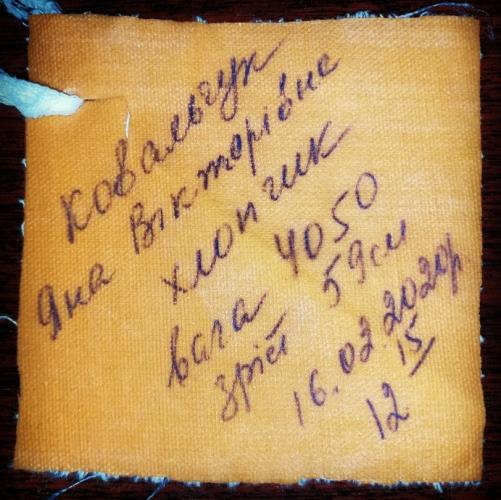 Ковальчук
Яна Вікторівна
хлопчик
вага 4050
зріст 59см
16.02.2020р
12 15